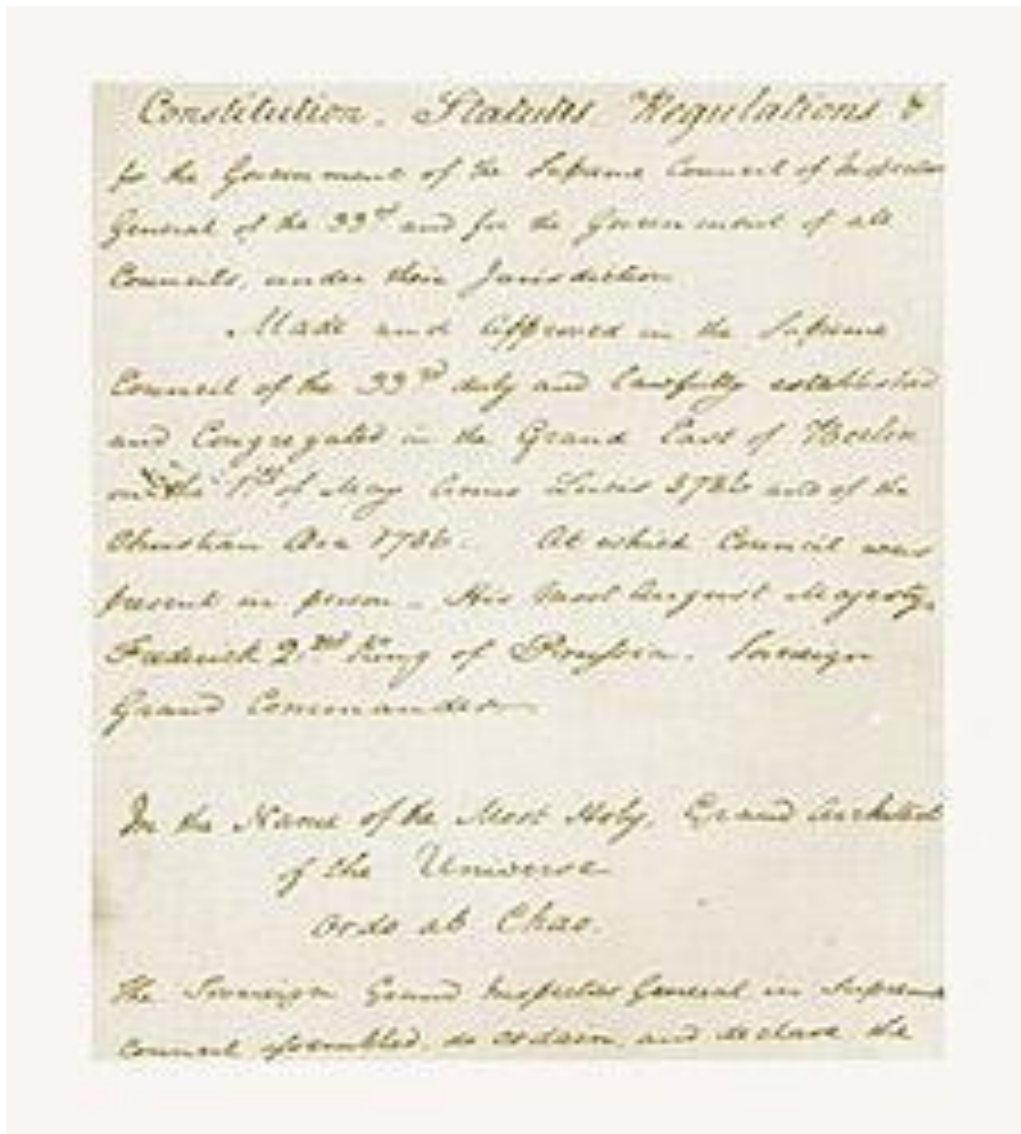 Constitution. Statutes Regulations &
for the Government of the Supreme Council of Inspector
General of the 33rd and for the Government of all
Councils, under their Jurisdiction
Made and approved in the Supreme
Council of the 33rd duly and lawfully established
and Congregated in the Grand East of Berlin
on the 1st of May Anno Lucis 5786 and of the
Christian Aera 1786. At which Council was
present in person. His Most August Majesty,
Frederick 2nd King of Prussia. Sovereign
Grand Commander
In the Name of the Most Holy, Grand Architect
of the Universe
Ordo ab Chao.
The Sovereign Grand Inspectors General in Supreme
Council assembled, do ordain, and declare the